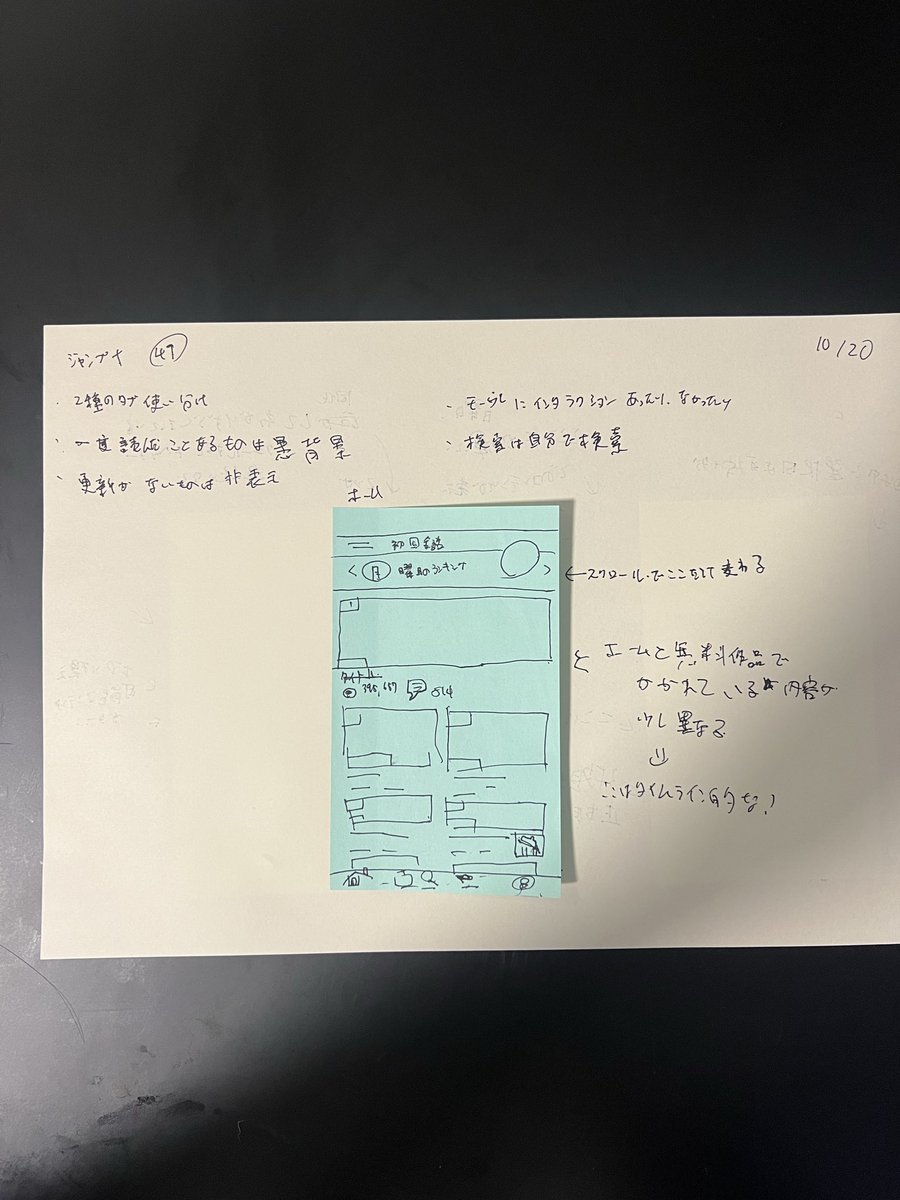 ジャンプ+ 49
10/20
・2種のタブ使い分け
・一度読んだことあるものは黒背景
・更新がないものは非表示
・モーダルにインタラクションあったり、なかったり
・検索は自分で検索
ホーム
初回全話
< 月 曜日のランキング >
←スクロールでここまで変わる
1
タイトル
395,157 514
ホームと無料作品で
かかれている内容が
少し異なる
ここはタイムライン的な!